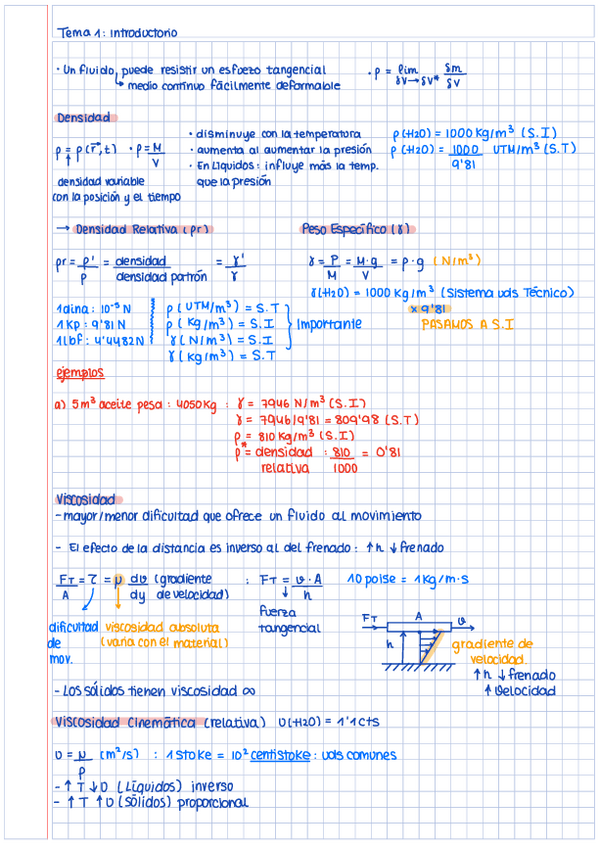 Tema 1: Introductorio
· Un fluido, puede resistir un esfuerzo tangencial
↳ medio continuo fácilmente deformable
· ρ = lim δm
δV→δV* δV
Densidad
ρ = ρ(r⃗,t) · ρ = M
V
densidad variable
con la posición y el tiempo
· disminuye con la temperatura
· aumenta al aumentar la presión
· En Líquidos: influye más la temp.
que la presión
ρ(H2O) = 1000 Kg/m³ (S.I)
ρ(H2O) = 1000 UTM/m³ (S.T)
9'81
→ Densidad Relativa (ρr)
ρr = ρ' = densidad = γ'
ρ densidad patrón γ
Peso Específico (γ)
γ = P = M·g = ρ·g (N/m³)
M V
γ(H2O) = 1000 Kg/m³ (Sistema uds Técnico)
x 9'81
PASAMOS A S.I
1 dina: 10⁻⁵ N
1 Kp: 9'81 N
1 lbf: 4'4482 N
ρ (UTM/m³) = S.T
ρ (Kg/m³) = S.I
γ (N/m³) = S.I
γ (Kg/m³) = S.T
Importante
ejemplos
a) 5m³ aceite pesa: 4050Kg : γ = 7946 N/m³ (S.I)
γ = 7946/9'81 = 809'98 (S.T)
ρ = 810 Kg/m³ (S.I)
ρ* = densidad : 810 = 0'81
relativa 1000
Viscosidad
- mayor/menor dificultad que ofrece un fluido al movimiento
- El efecto de la distancia es inverso al del frenado: ↑h ↓frenado
FT = τ = μ dv (gradiente : FT = v·A 10 poise = 1 Kg/m·s
A dy de velocidad) h
dificultad
de
mov.
viscosidad absoluta
(varía con el material)
fuerza
tangencial
FT A v
h
gradiente de
velocidad
↑h ↓frenado
↑velocidad
- Los sólidos tienen viscosidad ∞
Viscosidad Cinemática (relativa) υ(H2O) = 1'1cts
υ = μ (m²/s) : 1 Stoke = 10² centistoke: uds comunes
ρ
- ↑T ↓υ (Líquidos) inverso
- ↑T ↑υ (Sólidos) proporcional